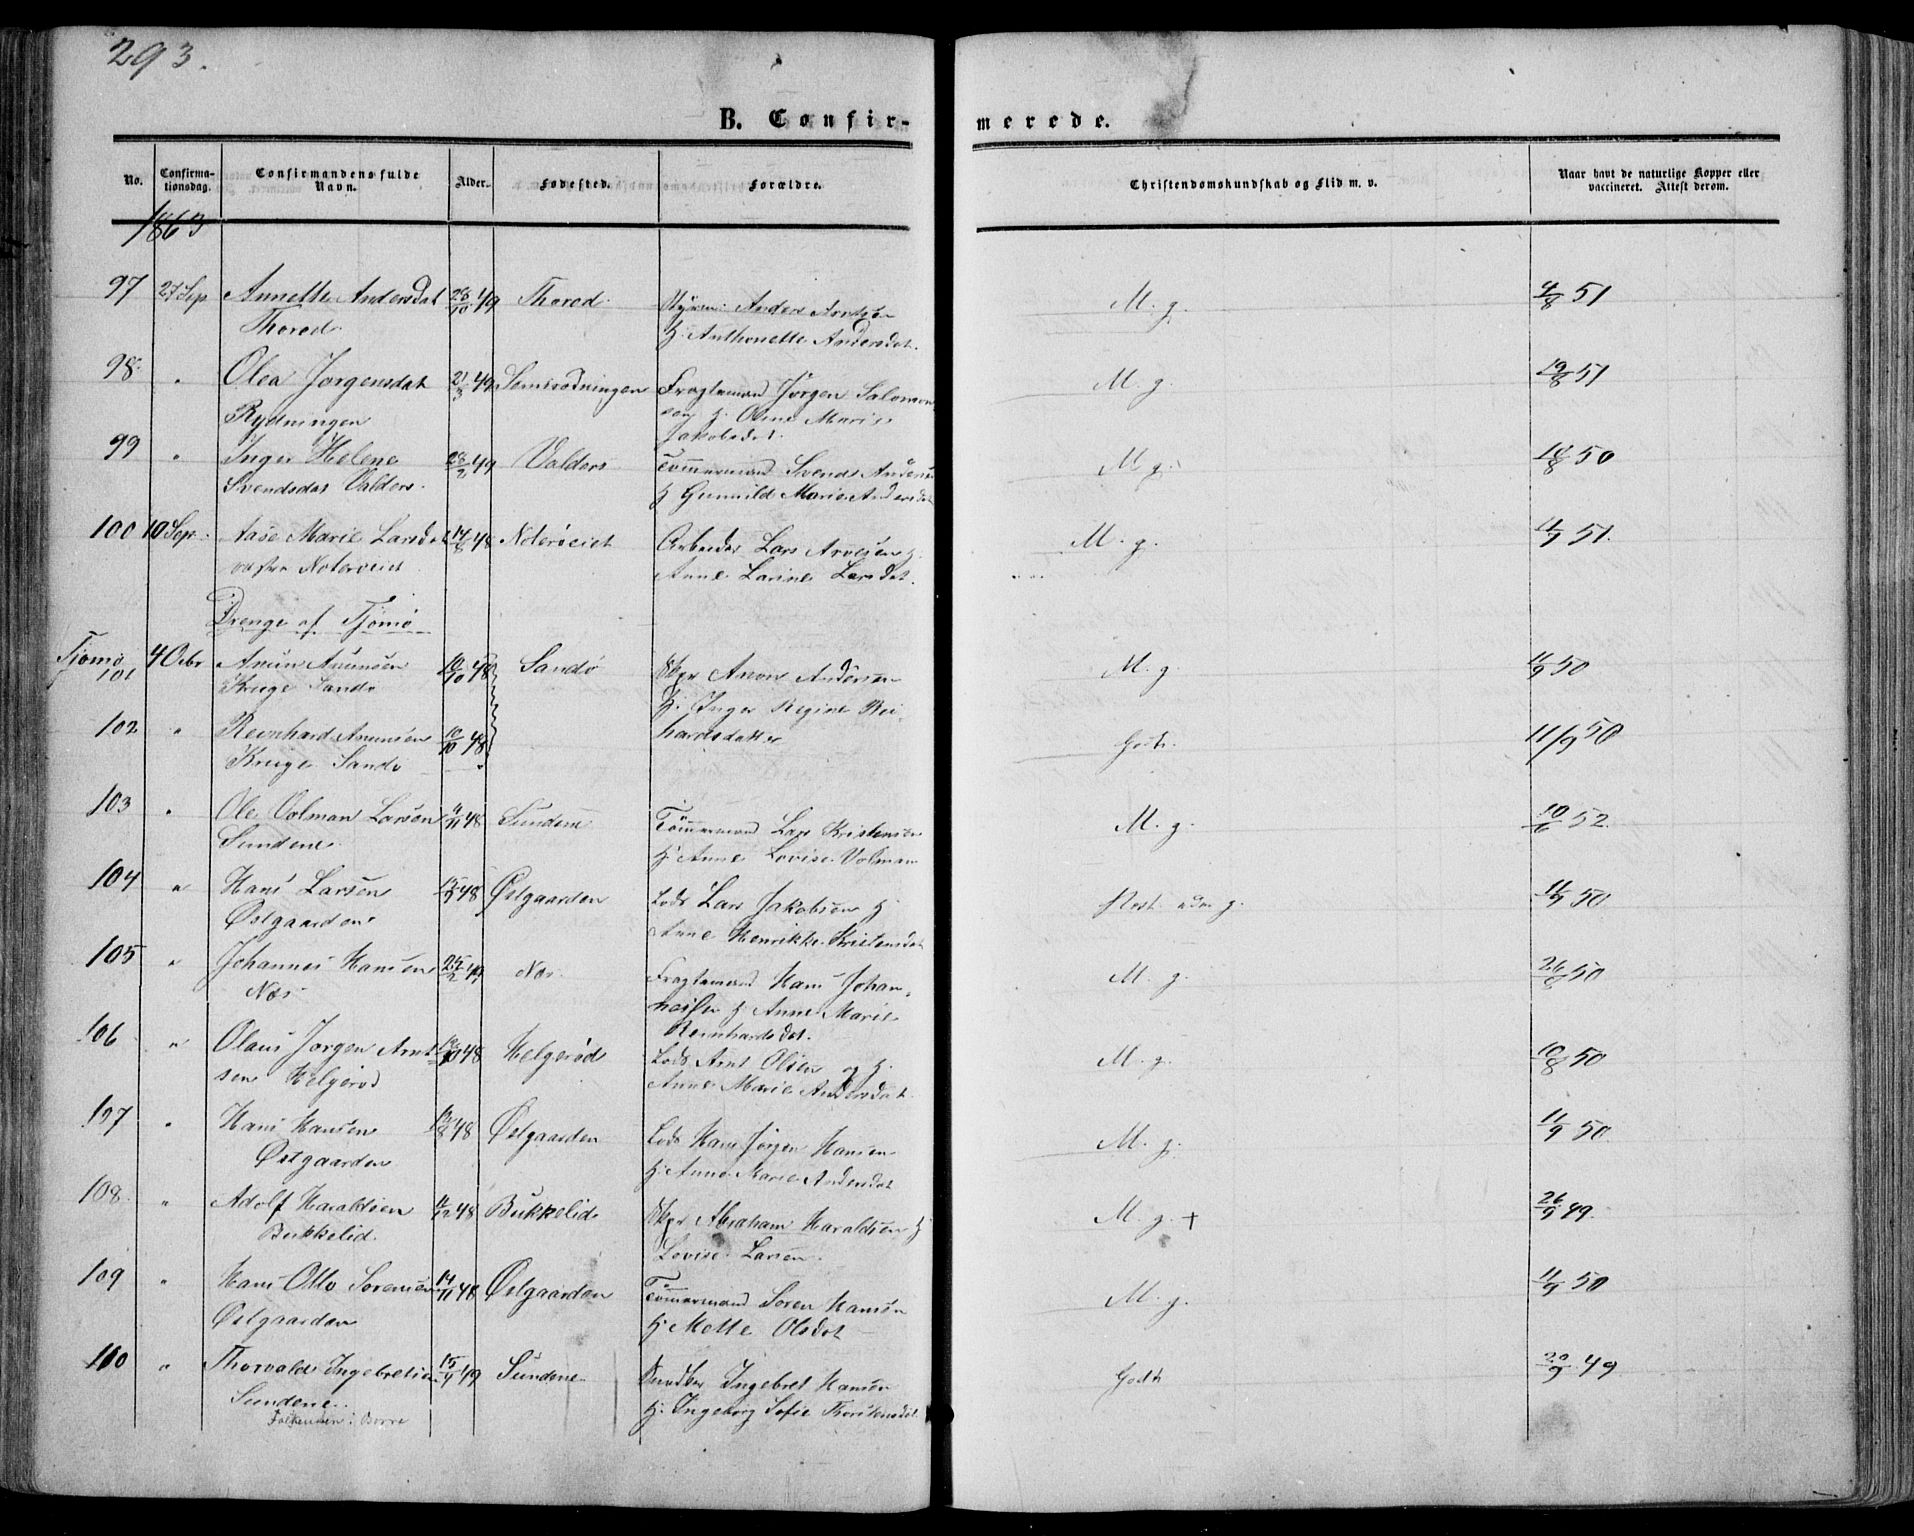 293.
B. Confirmerede.
No. Confirmationsdag. Confirmandens fulde Navn. Alder. Fødested. Forældre. Christendomskundskab og Flid m. v. Naar havt de naturlige Kopper eller vaccineret. Attest derom.
1863
97 27 Sep Annette Andersdat 28/10 49 Thorød Styrm. Anders Arntsen M. g. 4/8 51
Thorød H. Anthonette Andersdat.
98 " Olea Jorgensdat 21/3 49 Semsrødningen Fragtemand Jørgen Salomon M. g. 19/8 51
Rydningen sen H. Oline Marie
Jakobsdat.
99 " Inger Helene 28/2 49 Valders Tömmermand Svends Andersen M. g. 18/8 50
Svendsdat Valders. H. Gunnild Marie Andersdat
100 10 Sep. Aase Marie Larsdat 14/8 48 Noterøeiet Arbeider Lars Arvesen H. M. g. 4/7 51.
Anne Larine Larsdat.
Drenge af Tjømø
Tjømø
101 4 Octbr Anun Anunsen 10/10 48 Sandø Skpr Anon Andersen M. g. 11/9 50
Kruge Sandø H. Inger Regine Rei-
102 " Reinhard Anunsen 10/10 48 hardsdatter Godt. 11/9 50
Kruge Sandø
103 " Ole Volman Larsen 4/11 48 Sundene Tömmermand Lars Kristensen M. g. 10/6 52.
Sundene. H. Anne Lovise Volman
104 " Hans Larsen 15/9 48 Østgaarden Lods Lars Jakobsen H. 11/9 50
Østgaarden Anne Henrikke Kristensdat
105 " Johannes Hansen 25/2 49 Næs. Fragtemand Hans Johan- M. g. 26/8 50
Næs nessen H. Anne Marie
Reinhardsdat.
106 " Olaus Jørgen Arnt 48 Helgerød Lods Arnt Olsen og H. M. g. 10/8 50
sen Helgerød Anne Marie Andersdat.
107 " Hans Hansen 48 Østgaarden Lods Hans Jörgen Hansen M. g. 11/9 50
Østgaarden H. Anne Marie Andersdat
108 " Adolf Haraldsen 11/12 48 Bukkelid Skpr Abraham Haraldsen H. M. g. + 26/9 49.
Bukkelid. Lovise Larsen
109 " Hans Otto Sorensen 14/11 48 Østgaarden Tömmermand Soren Hansen M. g. 11/9 50
Østgaarden H. Mette Olsdat
110 " Thorvald Ingebretsen 15/4 49 Sundene Snedker Ingebret Hansen Godt 20/9 49
Sundene. H. Ingeborg Sofie Thorstensdat.